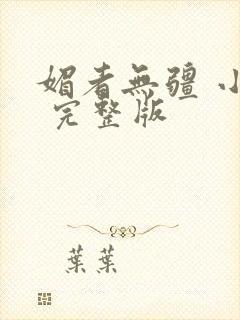 媚者無疆 小
完整版
葉葉